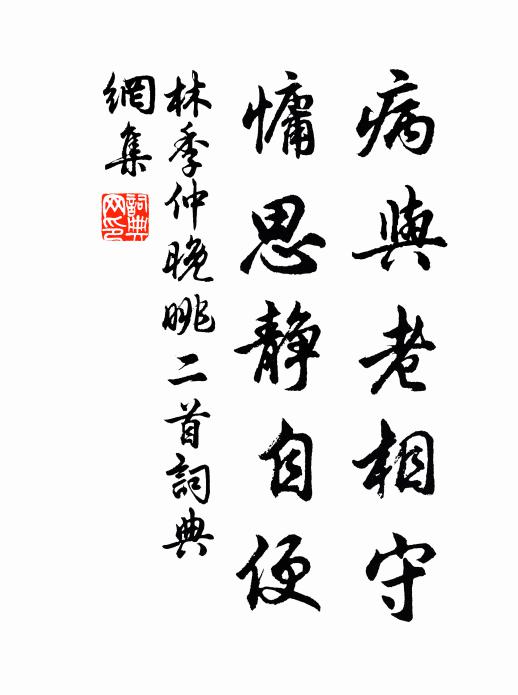 病與老相守
慵思静自便
林季仲晚眺二首詞典
網集
詞典
网印